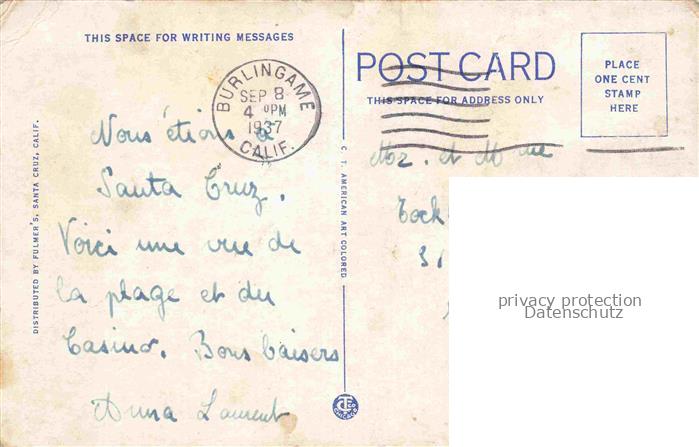 THIS SPACE FOR WRITING MESSAGES
POST CARD
THIS SPACE FOR ADDRESS ONLY
PLACE
ONE CENT
STAMP
HERE
BURLINGAME
SEP 8
4 PM
1937
CALIF.
Nous étions à
Santa Cruz.
Voici une vue de
la plage et du
Casino. Bons baisers
Anna Laurent
Mr. et Mme
DISTRIBUTED BY FULMER'S, SANTA CRUZ, CALIF.
C. T. AMERICAN ART COLORED
privacy protection
Datenschutz